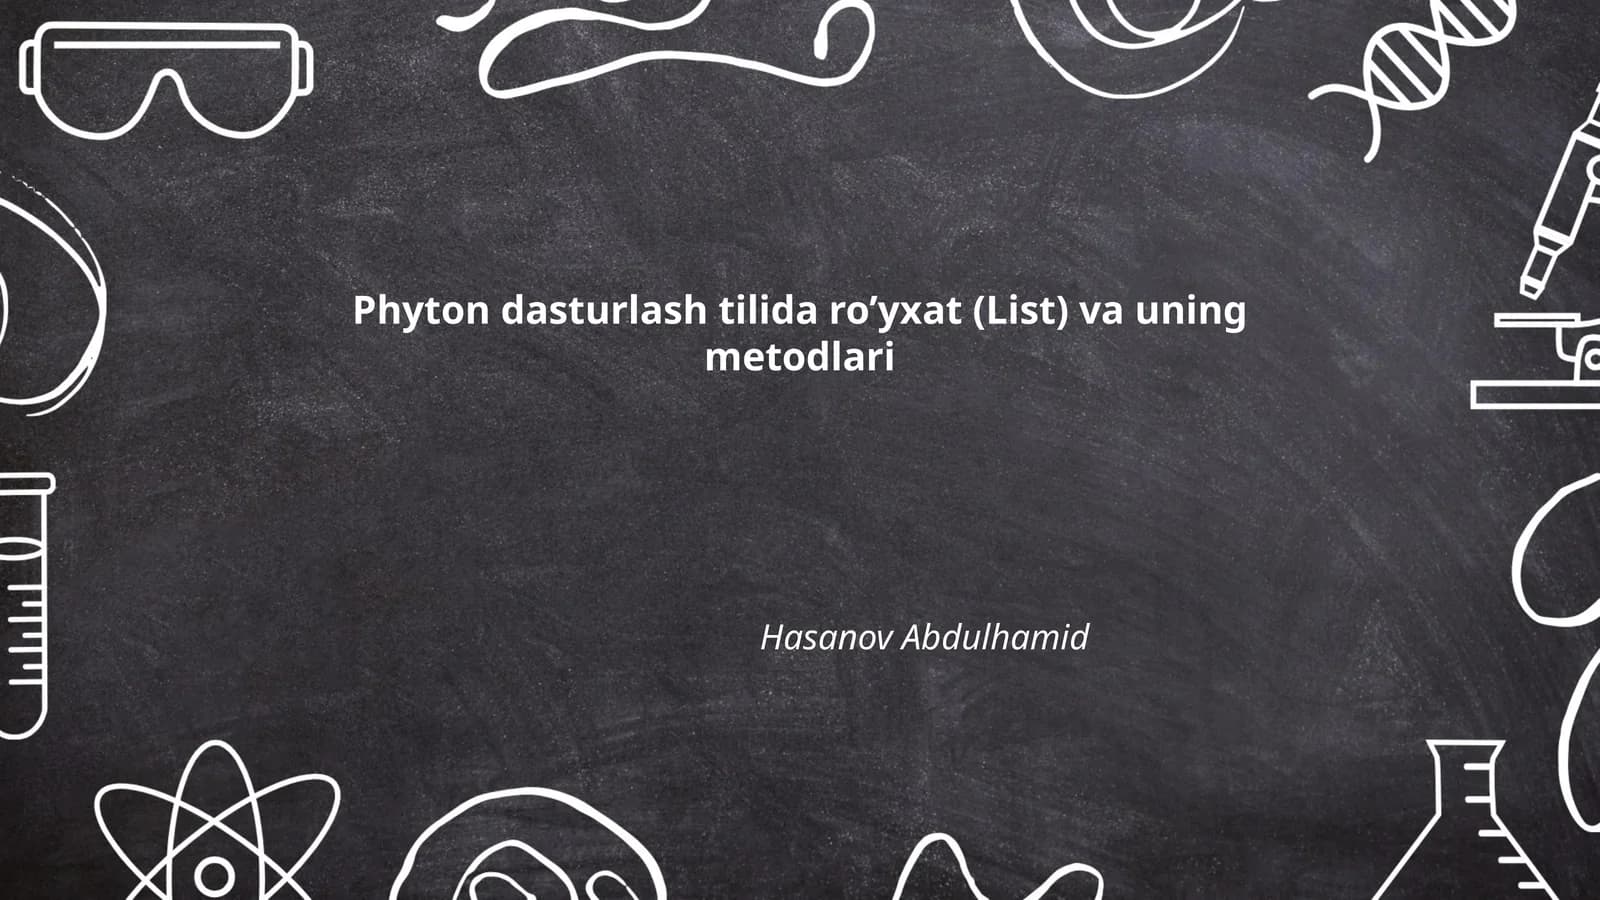 Phyton dasturlash tilida ro’yxat (List) va uning
metodlari
Hasanov Abdulhamid